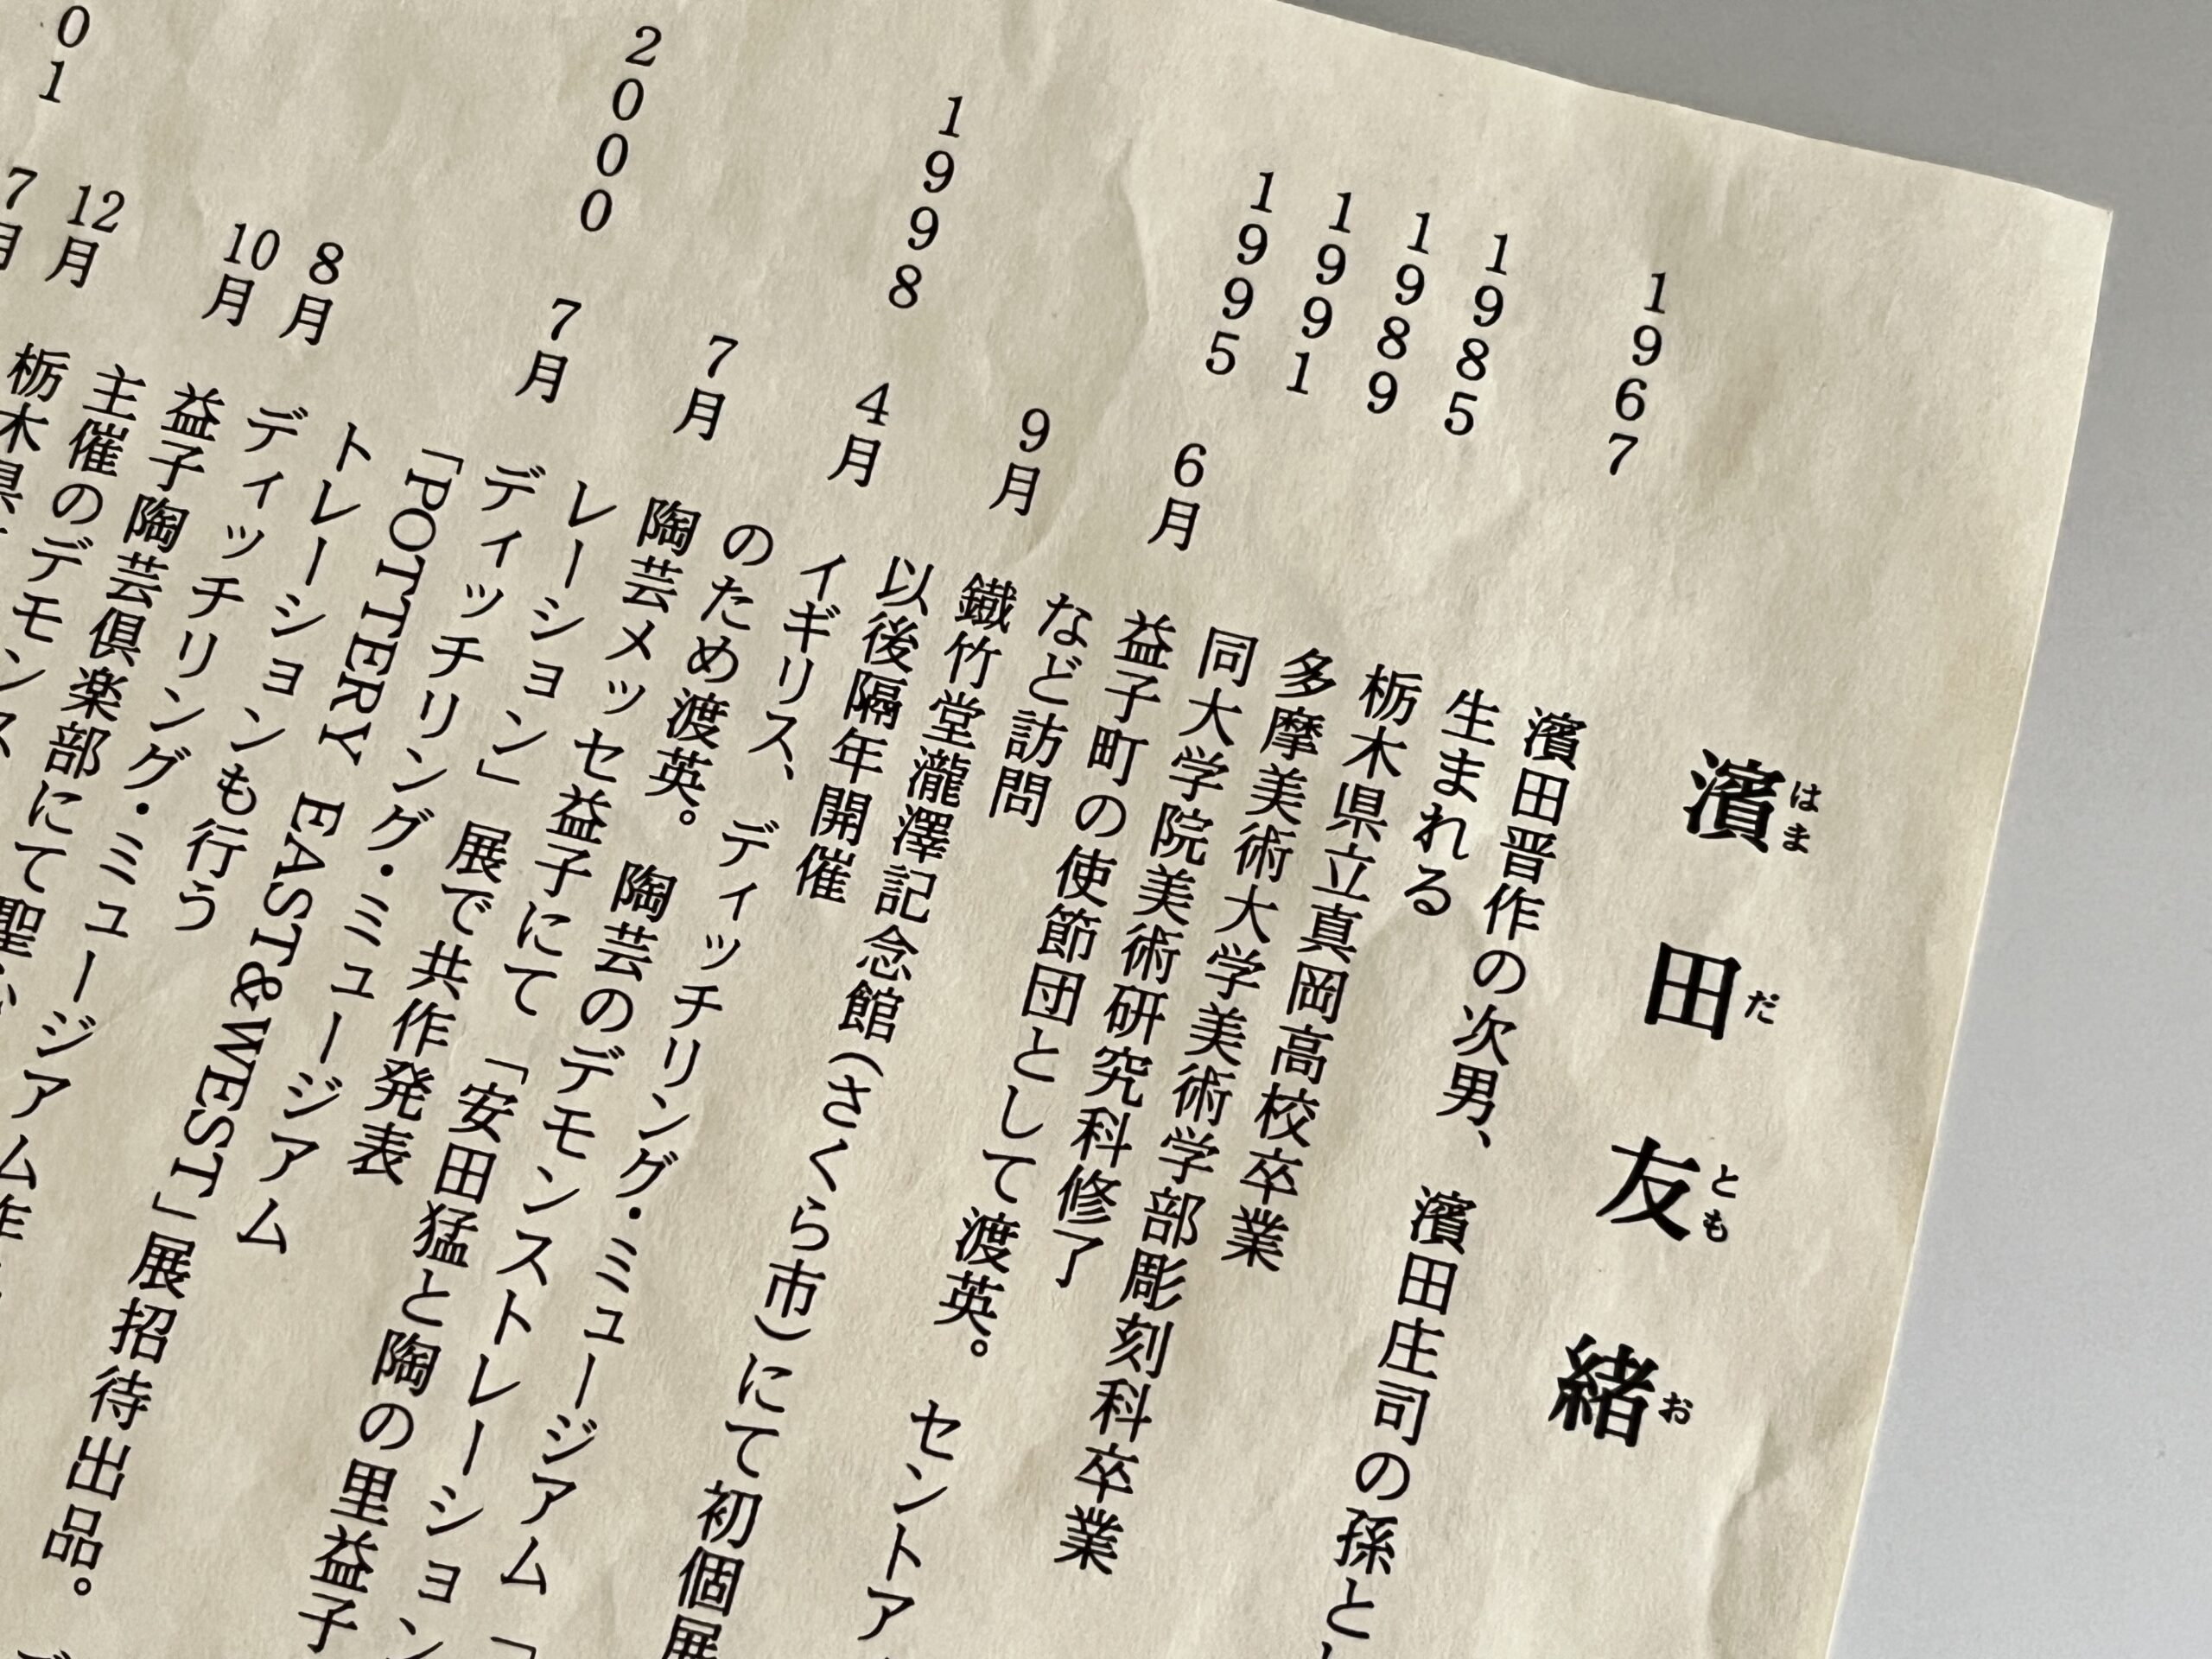 濱田友緒
はまだともお
1967 濱田晋作の次男、濱田庄司の孫とし
生まれる
1985 栃木県立真岡高校卒業
1989 多摩美術大学美術学部彫刻科卒業
1991 同大学院美術研究科修了
1995 6月 益子町の使節団として渡英。セントア
など訪問
9月 鐡竹堂瀧澤記念館(さくら市)にて初個展
以後隔年開催
1998 4月 イギリス、ディッチリング・ミュージアム「
のため渡英。陶芸のデモンストレーション
7月 陶芸メッセ益子にて「安田猛と陶の里益子
レーション」展で共作発表
2000 7月 ディッチリング・ミュージアム
「POTTERY EAST&WEST」展招待出品。デ
トレーションも行う
8月 ディッチリング・ミュージアム作
10月 益子陶芸倶楽部にて聖
主催のデモンス
12月 栃木県
01 7月